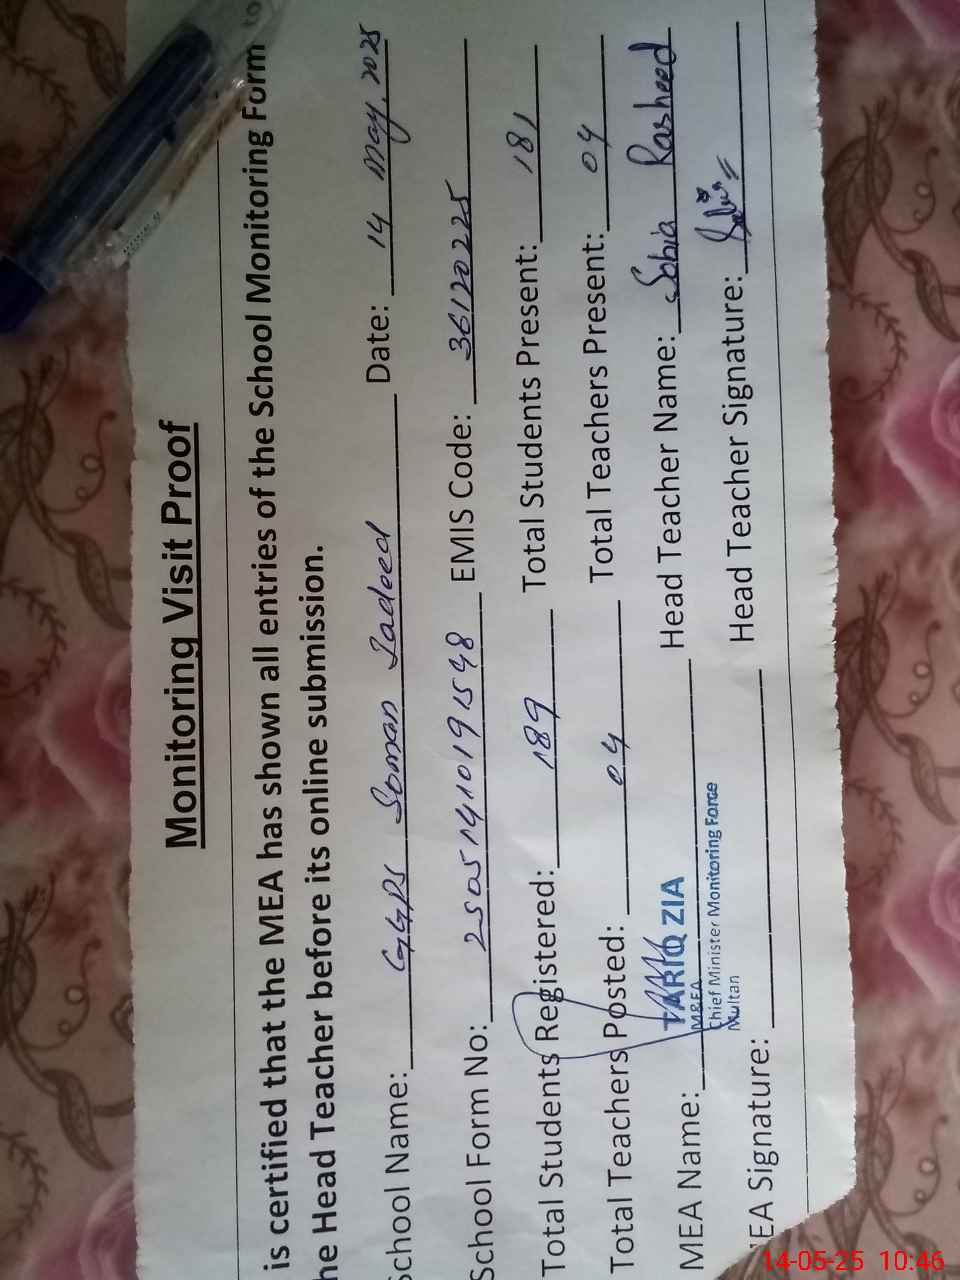 Monitoring Visit Proof
is certified that the MEA has shown all entries of the School Monitoring Form to
he Head Teacher before its online submission.
School Name: GGPS Soman Jadeed Date: 14 May, 2025
School Form No: 25051410191548 EMIS Code: 36120225
Total Students Registered: 189 Total Students Present: 181
Total Teachers Posted: 04 Total Teachers Present: 04
MEA Name: TARIQ ZIA Head Teacher Name: Sobia Rasheed
M&EA
Chief Minister Monitoring Force
Multan
EA Signature: Head Teacher Signature:
14-05-25 10:46